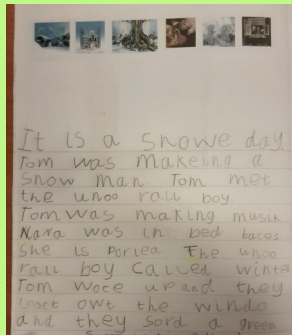 It is a snowe day.
Tom was makeing a
snow man Tom met
the unoo rall boy.
Tom was making musik
Nana was in bed baces
she is porlea The unoo
rall boy called winter
Tom woce up and they
looct owt the windo
and they sord a green